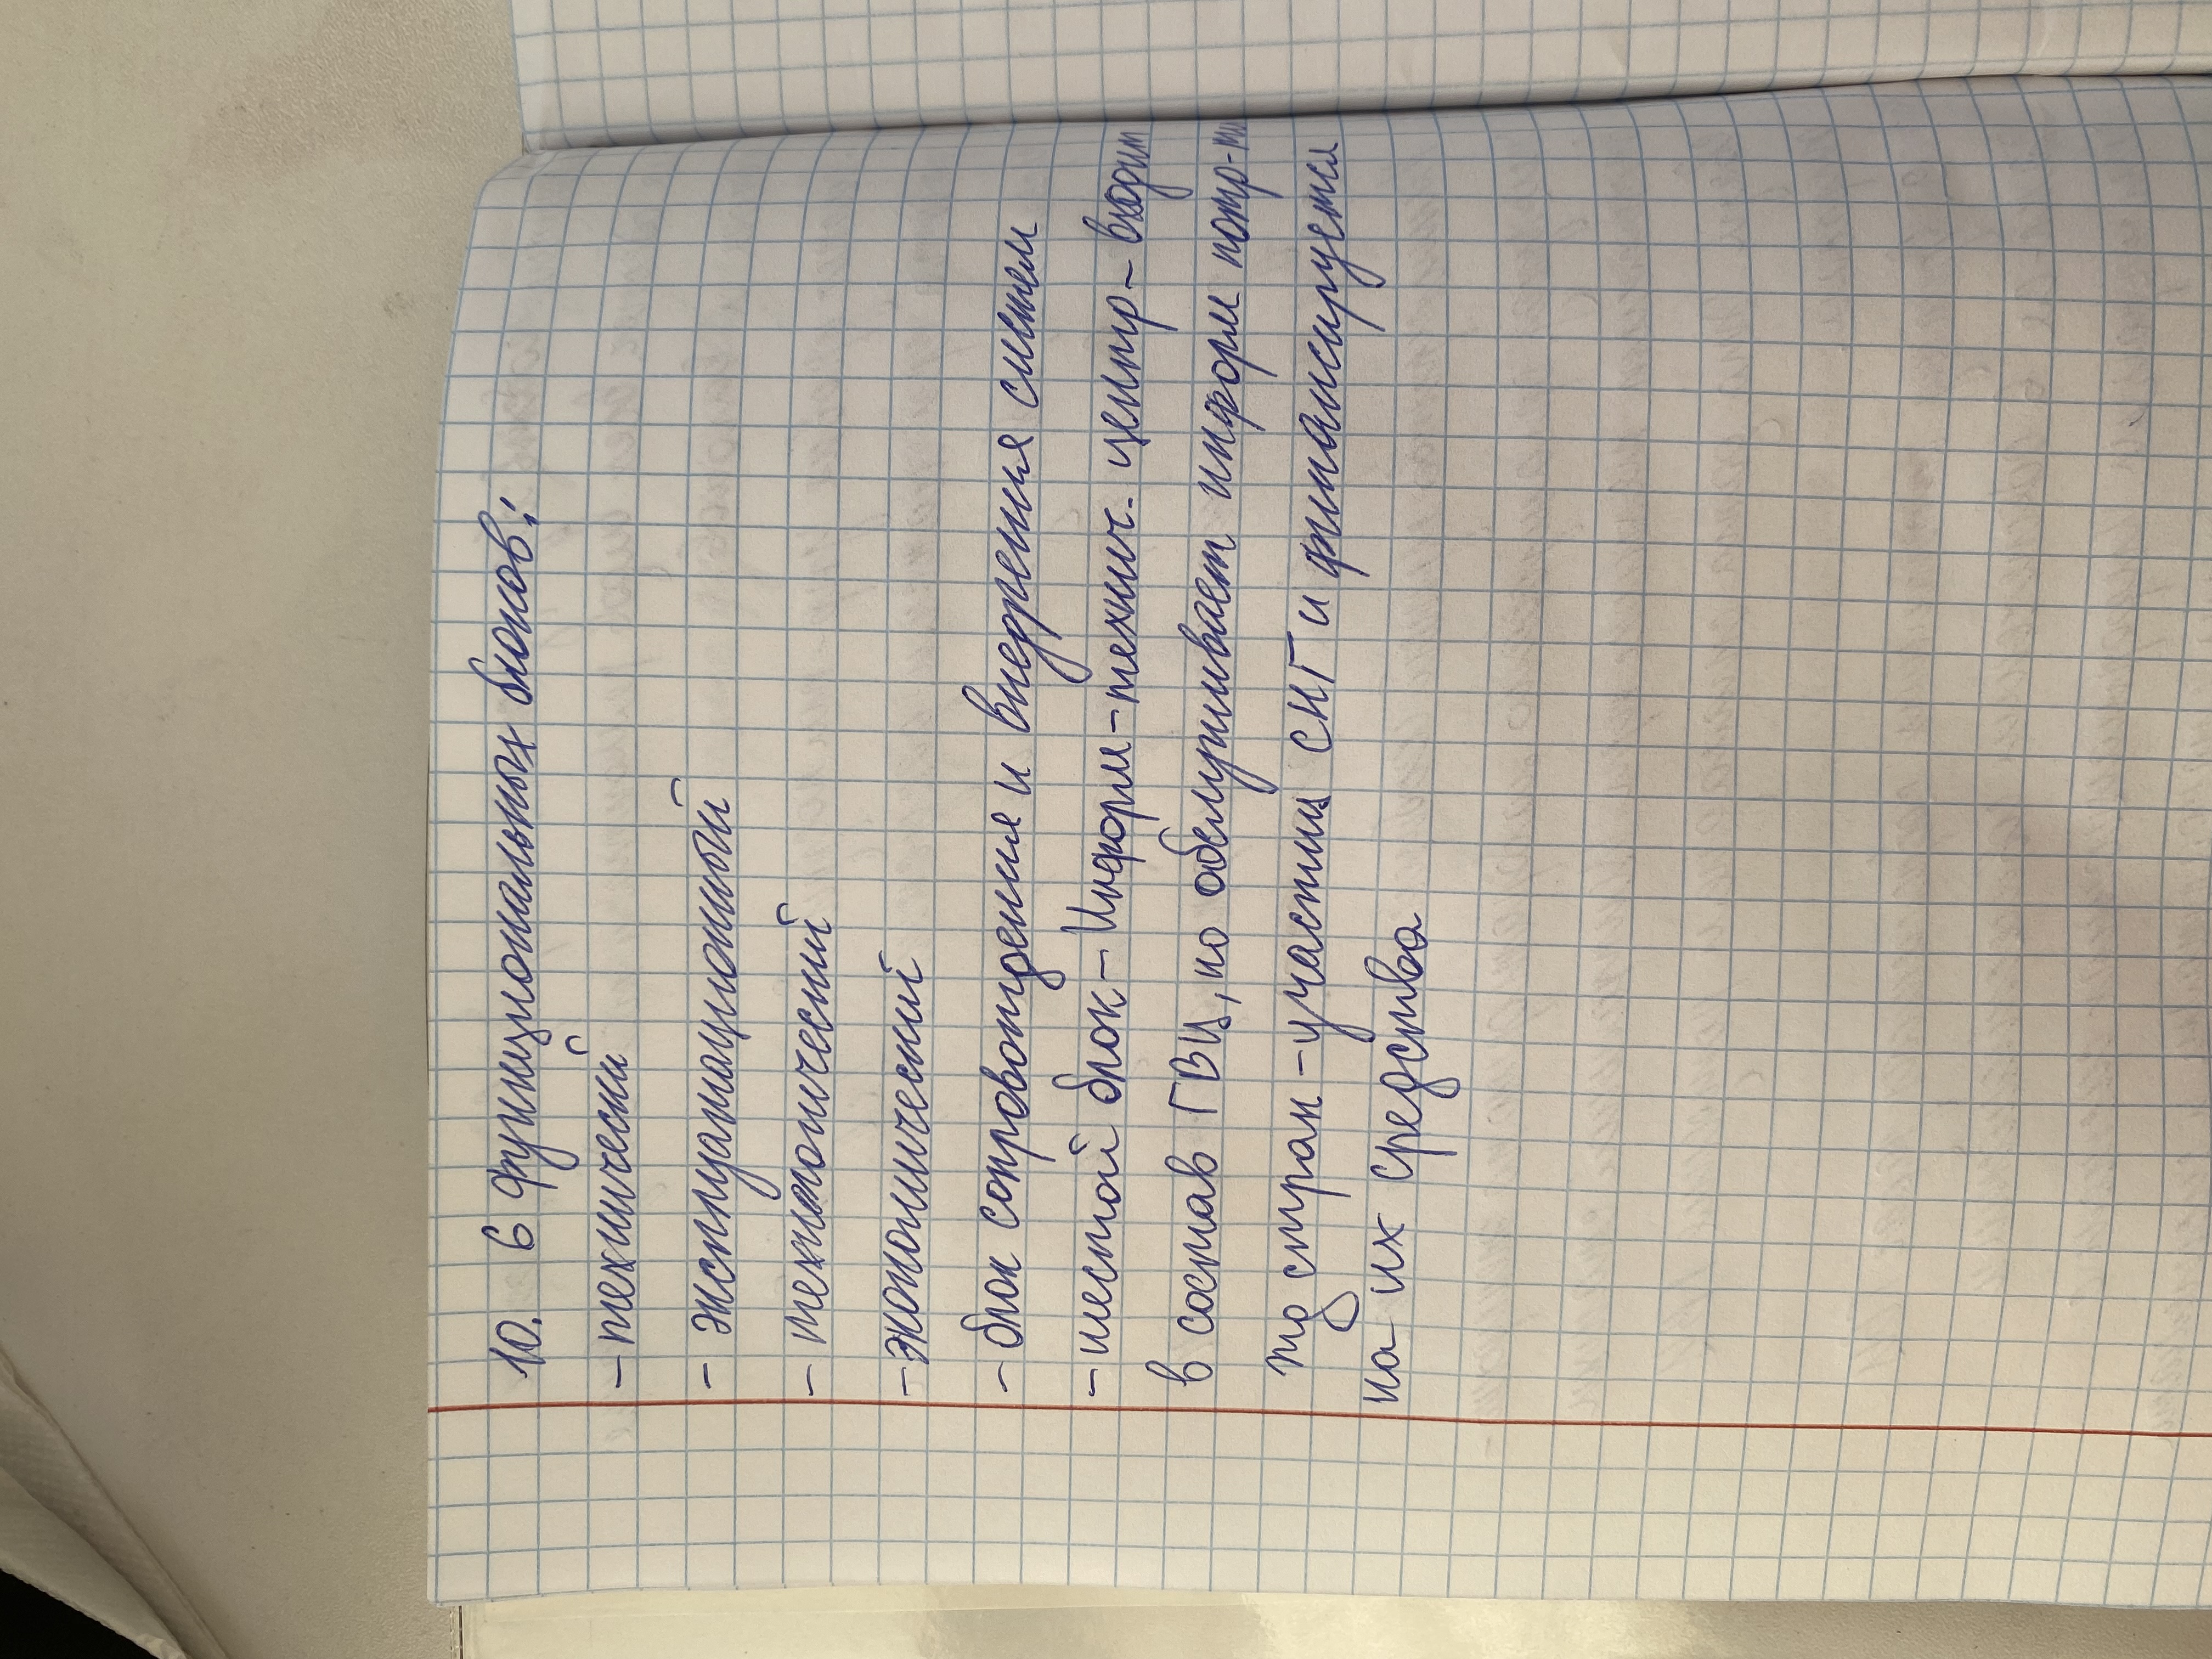 10. 6 функциональных блоков:
- технический
- эксплуатационный
- технологический
- экономический
- блок сопровождения и внедрения систем
- шестой блок - Информ-технич. центр - входит
в состав ГВЦ, но обслуживает информ потр-ти
по стран-участниц СНГ и финансируется
на их средства